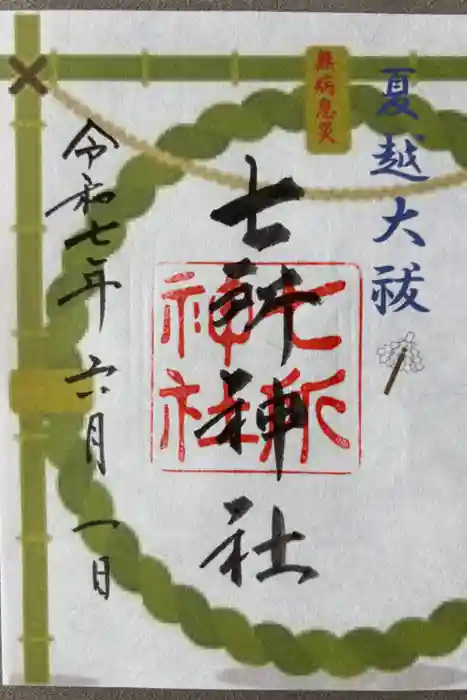 夏越大祓
無病息災
七所神社
七所神社
令和七年 六月 一日